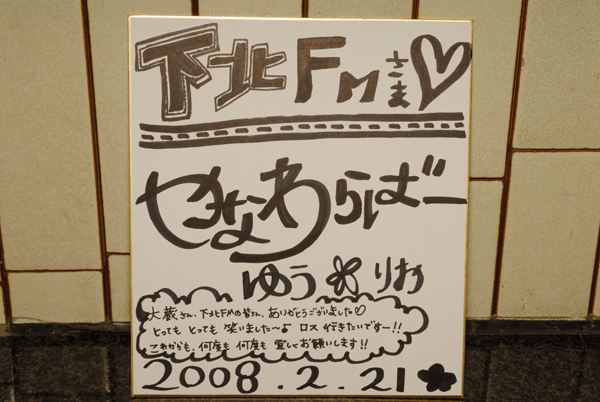 下北FMさま♡
やなわらばー
ゆう りお
大蔵さん、下北FMの皆さん、ありがとうございました♡
とっても とっても 笑いました〜♪ ロス 行きたいですー!!
これからも、何度も 何度も 宜しくお願いします!!
2008.2.21